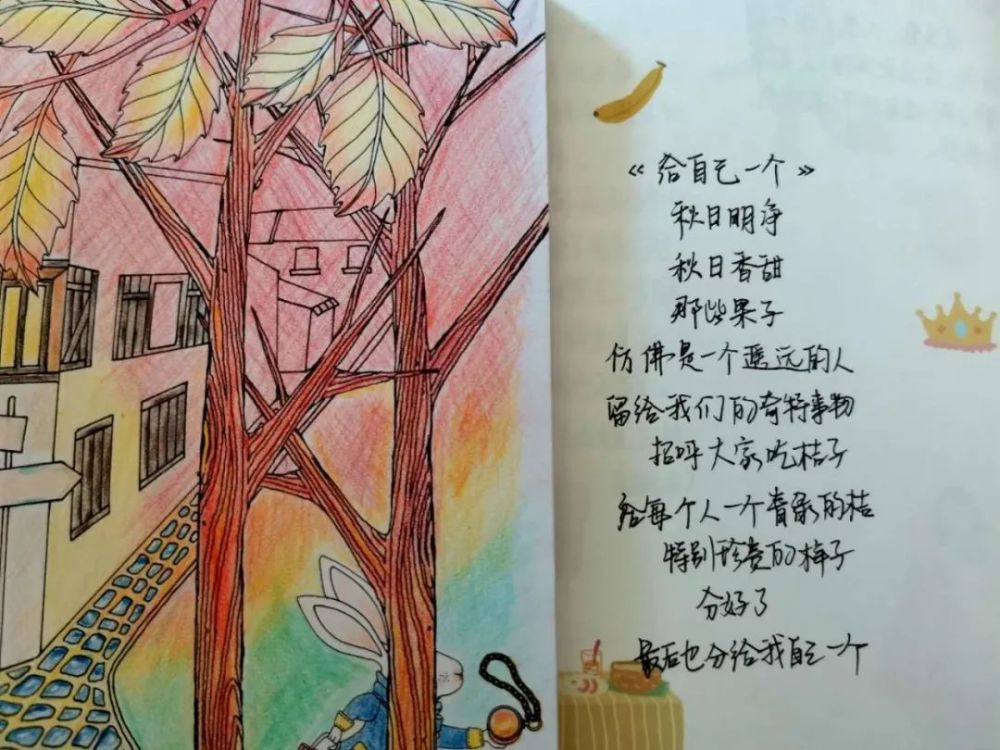 《给自己一个》
秋日明净
秋日香甜
那些果子
仿佛是一个遥远的人
留给我们的奇特事物
招呼大家吃桔子
给每个人一个 的桔
特别珍贵的梅子
分好了
最后也分给我自己一个